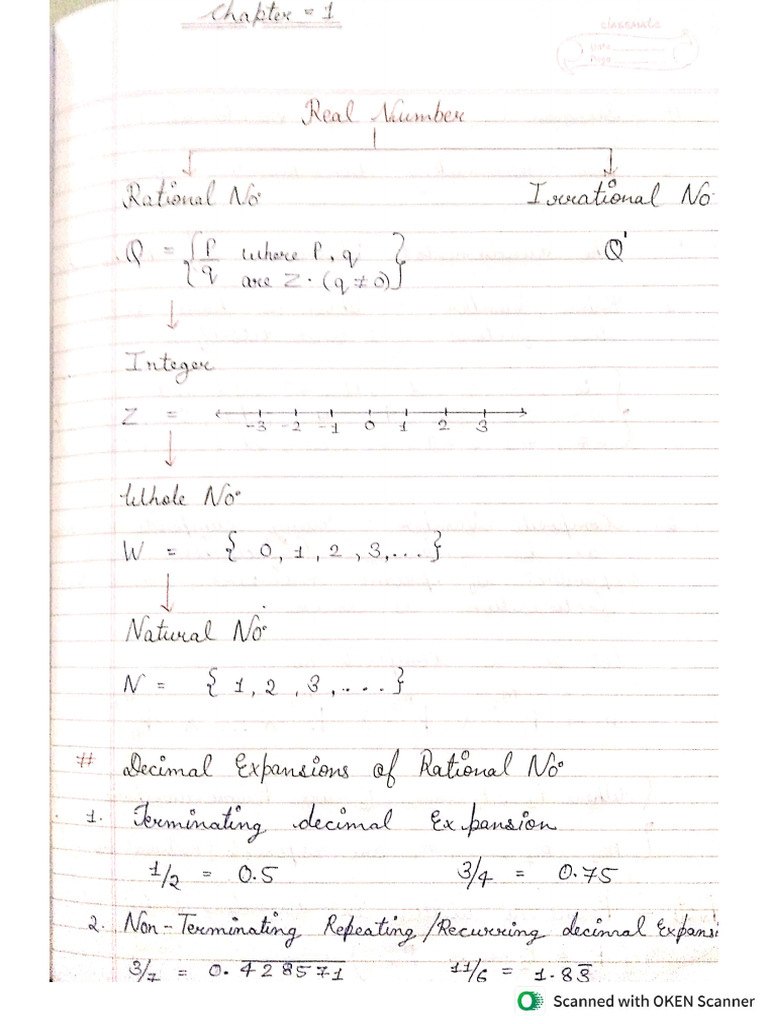 Chapter = 1
classmate
Date
Page
Real Number
Rational No.
Irrational No.
Q = { P/q where P, q are Z. (q ≠ 0) }
Q'
Integer
Z =
-3 -2 -1 0 1 2 3
Whole No.
W = { 0, 1, 2, 3, ... }
Natural No.
N = { 1, 2, 3, .... }
# Decimal Expansions of Rational No.
1. Terminating decimal Expansion
1/2 = 0.5 3/4 = 0.75
2. Non-Terminating Repeating/Recurring decimal Expansi
3/7 = 0.4̅2̅8̅5̅7̅1̅ 11/6 = 1.83̅
Scanned with OKEN Scanner